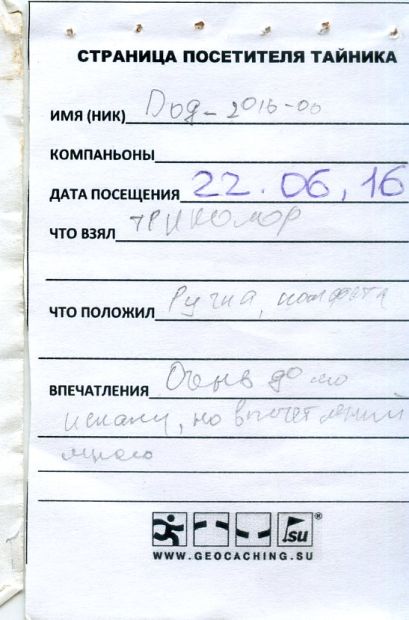 СТРАНИЦА ПОСЕТИТЕЛЯ ТАЙНИКА
ИМЯ (НИК)
КОМПАНЬОНЫ
ДАТА ПОСЕЩЕНИЯ 22.06,16
ЧТО ВЗЯЛ
ЧТО ПОЛОЖИЛ Ручка, конфета
ВПЕЧАТЛЕНИЯ Очень
искали, но впечатлений
много
.su®
WWW.GEOCACHING.SU